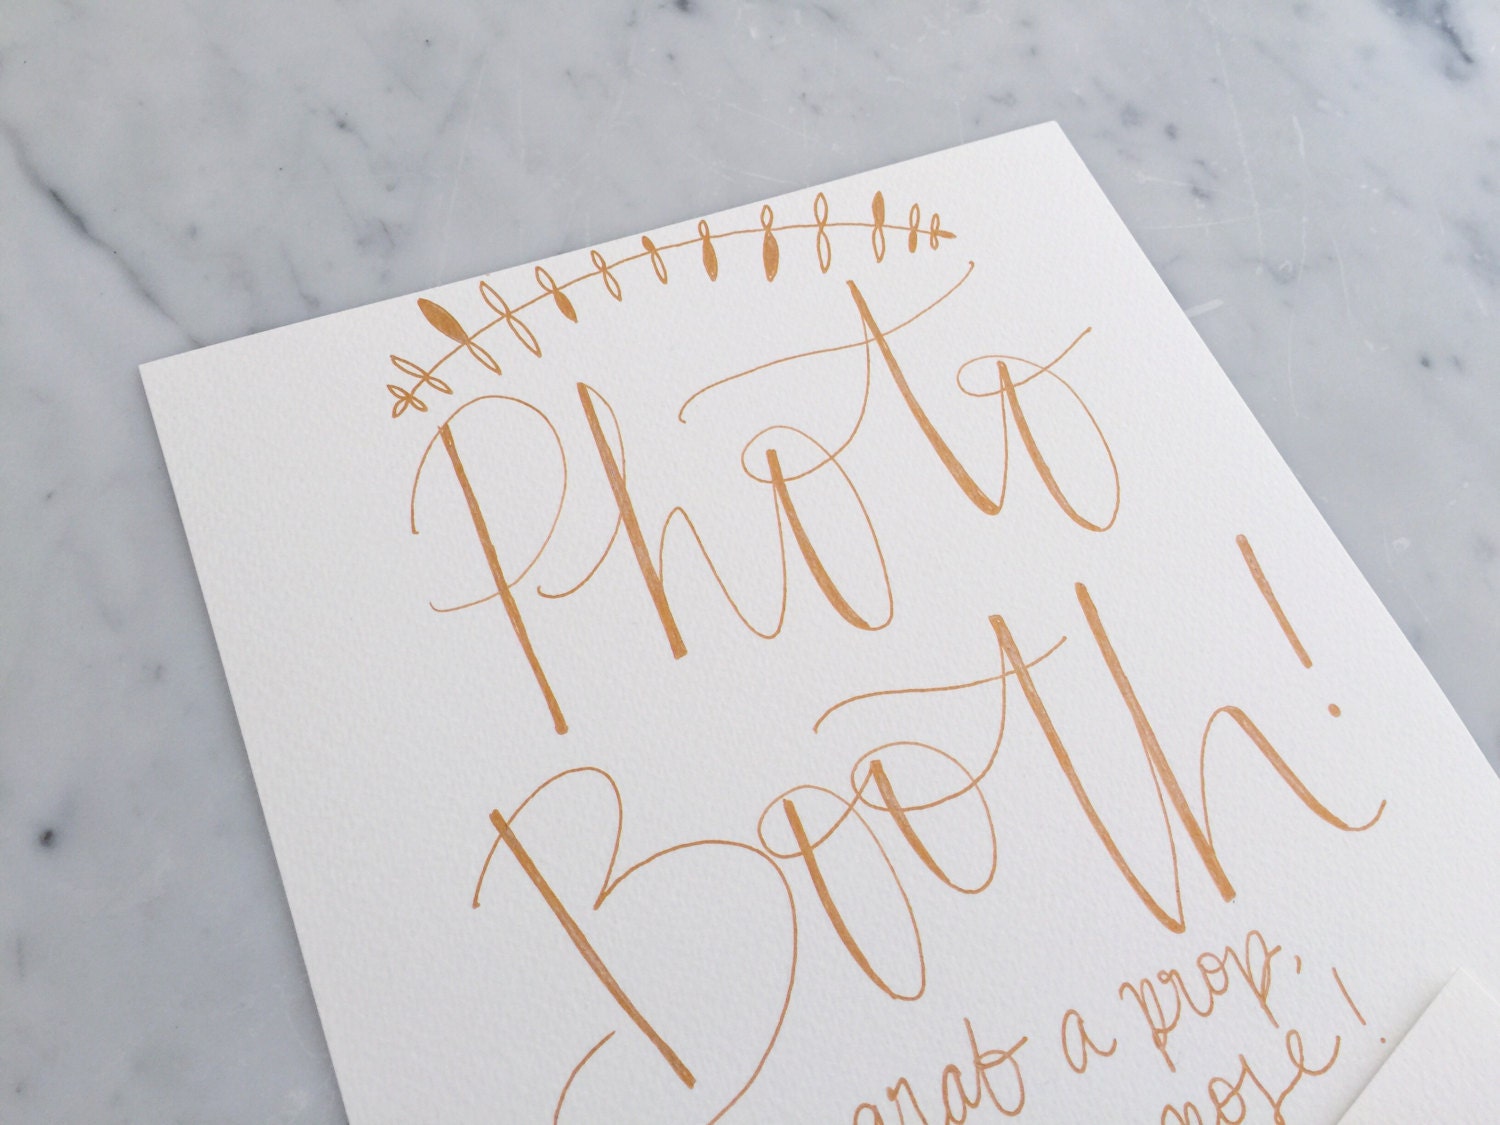 Photo
Booth!
grab a prop,
pose!